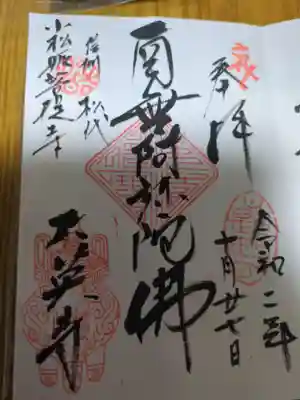 奉拝
令和二年
十月廿七日
南無阿弥陀佛
信州松代
小松姫菩提寺
大英寺